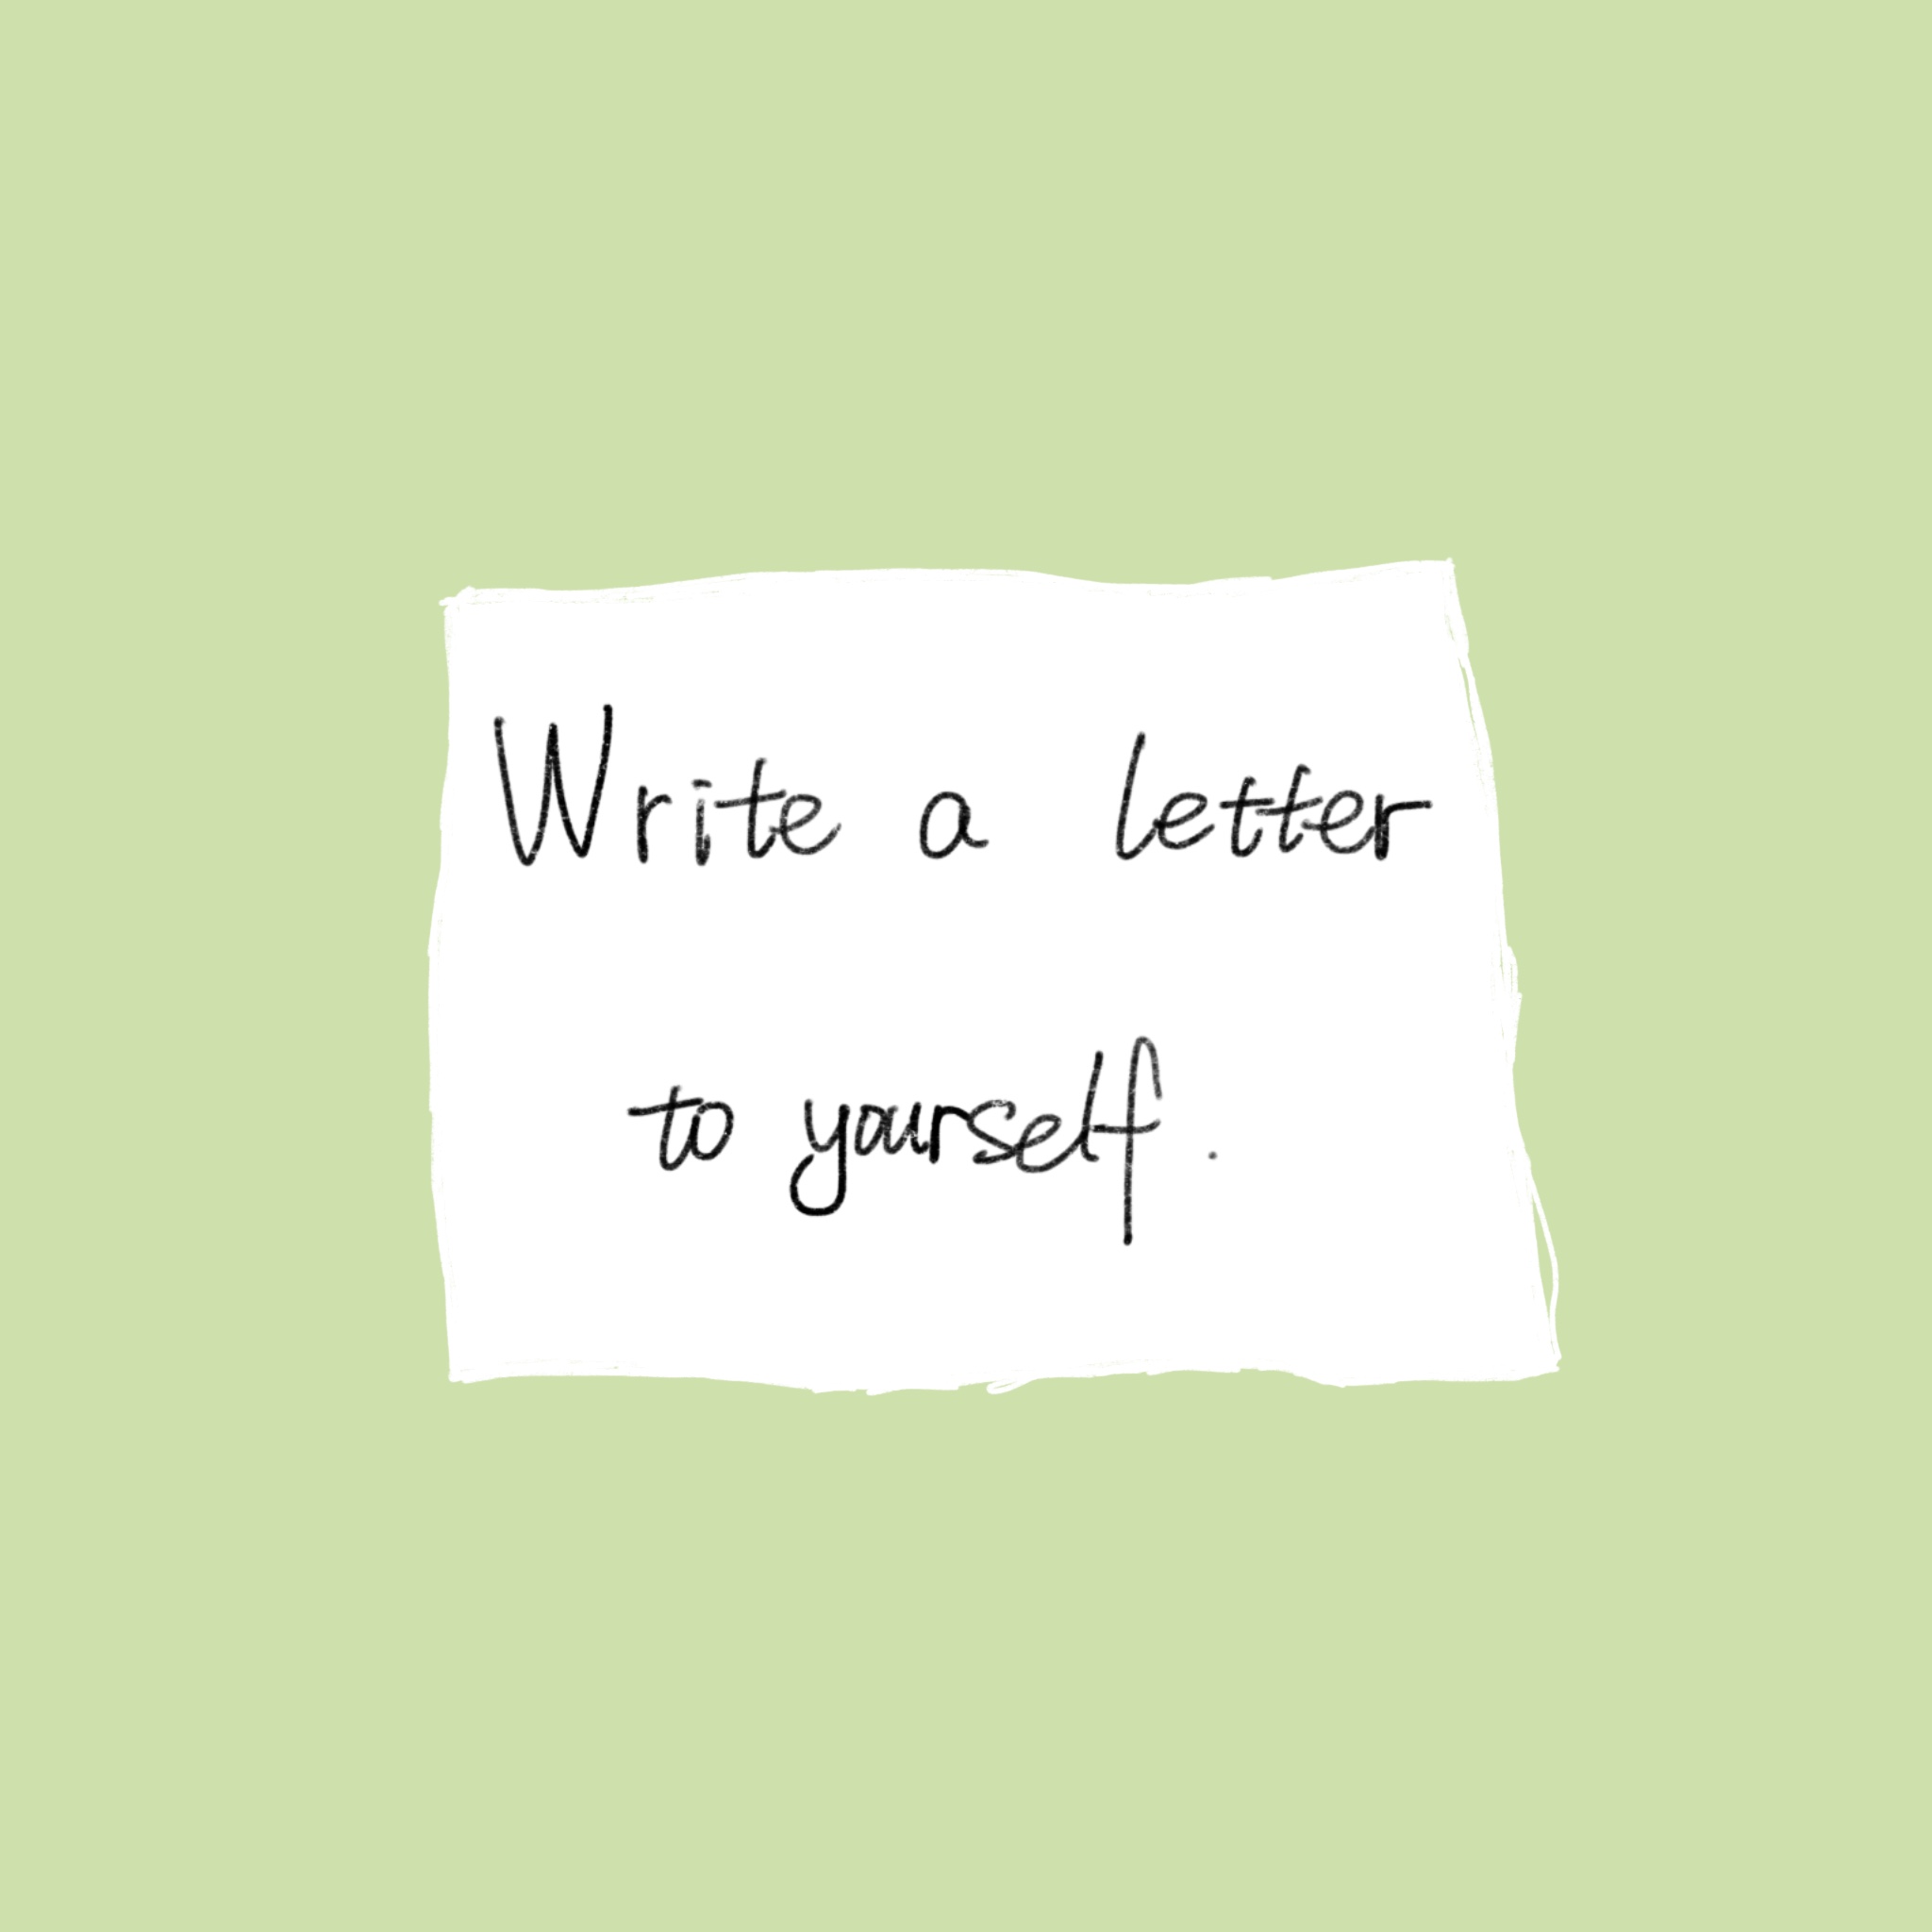 Write a letter
to yourself.